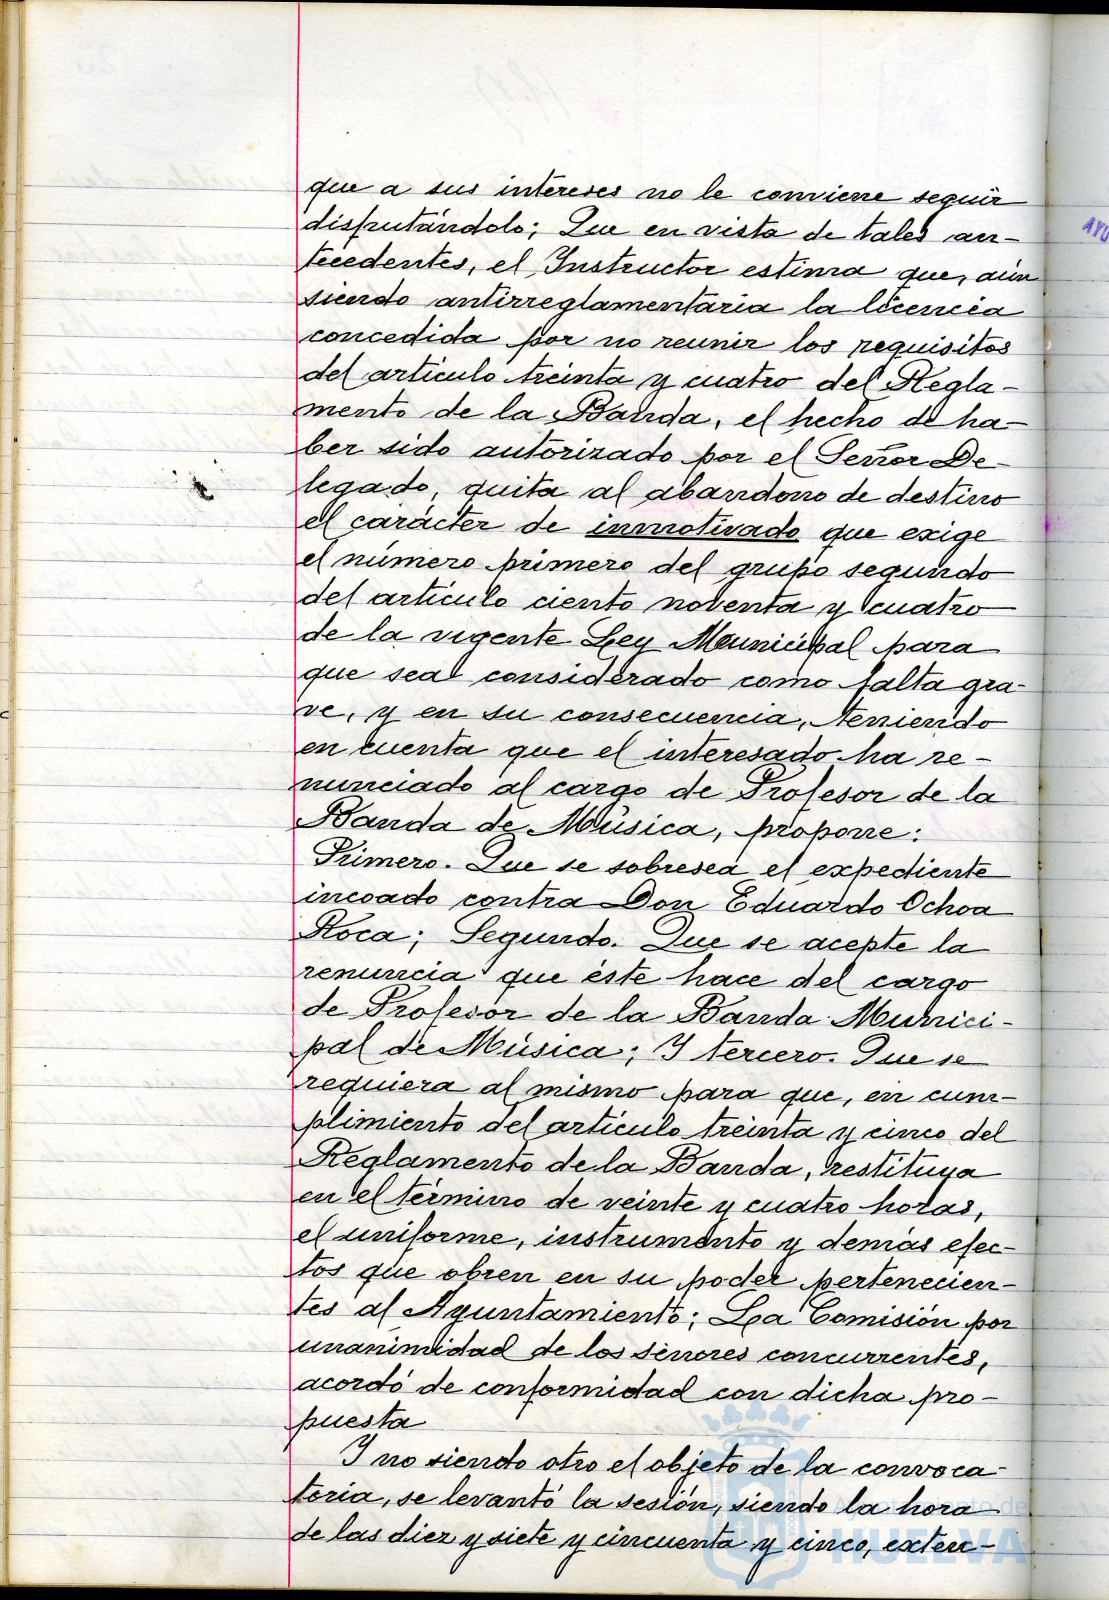 que a sus intereses no le conviene seguir
disfrutándolo; Que en vista de tales an-
tecedentes, el Instructor estima que, aún
siendo antirreglamentaria la licencia
concedida por no reunir los requisitos
del artículo treinta y cuatro del Regla-
mento de la Banda, el hecho de ha-
ber sido autorizado por el Señor De-
legado, quita al abandono de destino
el carácter de inmotivado que exige
el número primero del grupo segundo
del artículo ciento noventa y cuatro
de la vigente Ley Municipal para
que sea considerado como falta gra-
ve, y en su consecuencia, teniendo
en cuenta que el interesado ha re-
nunciado al cargo de Profesor de la
Banda de Música, propone:
Primero. Que se sobresea el expediente
incoado contra Don Eduardo Ochoa
Roca; Segundo. Que se acepte la
renuncia que éste hace del cargo
de Profesor de la Banda Munici-
pal de Música; Y tercero. Que se
requiera al mismo para que, en cum-
plimiento del artículo treinta y cinco del
Reglamento de la Banda, restituya
en el término de veinte y cuatro horas,
el uniforme, instrumento y demás efec-
tos que obren en su poder pertenecien-
tes al Ayuntamiento; La Comisión por
unanimidad de los señores concurrentes,
acordó de conformidad con dicha pro-
puesta
Y no siendo otro el objeto de la convoca-
toria, se levantó la sesión, siendo la hora
de las diez y siete y cincuenta y cinco, exten-
AYU
HUELVA